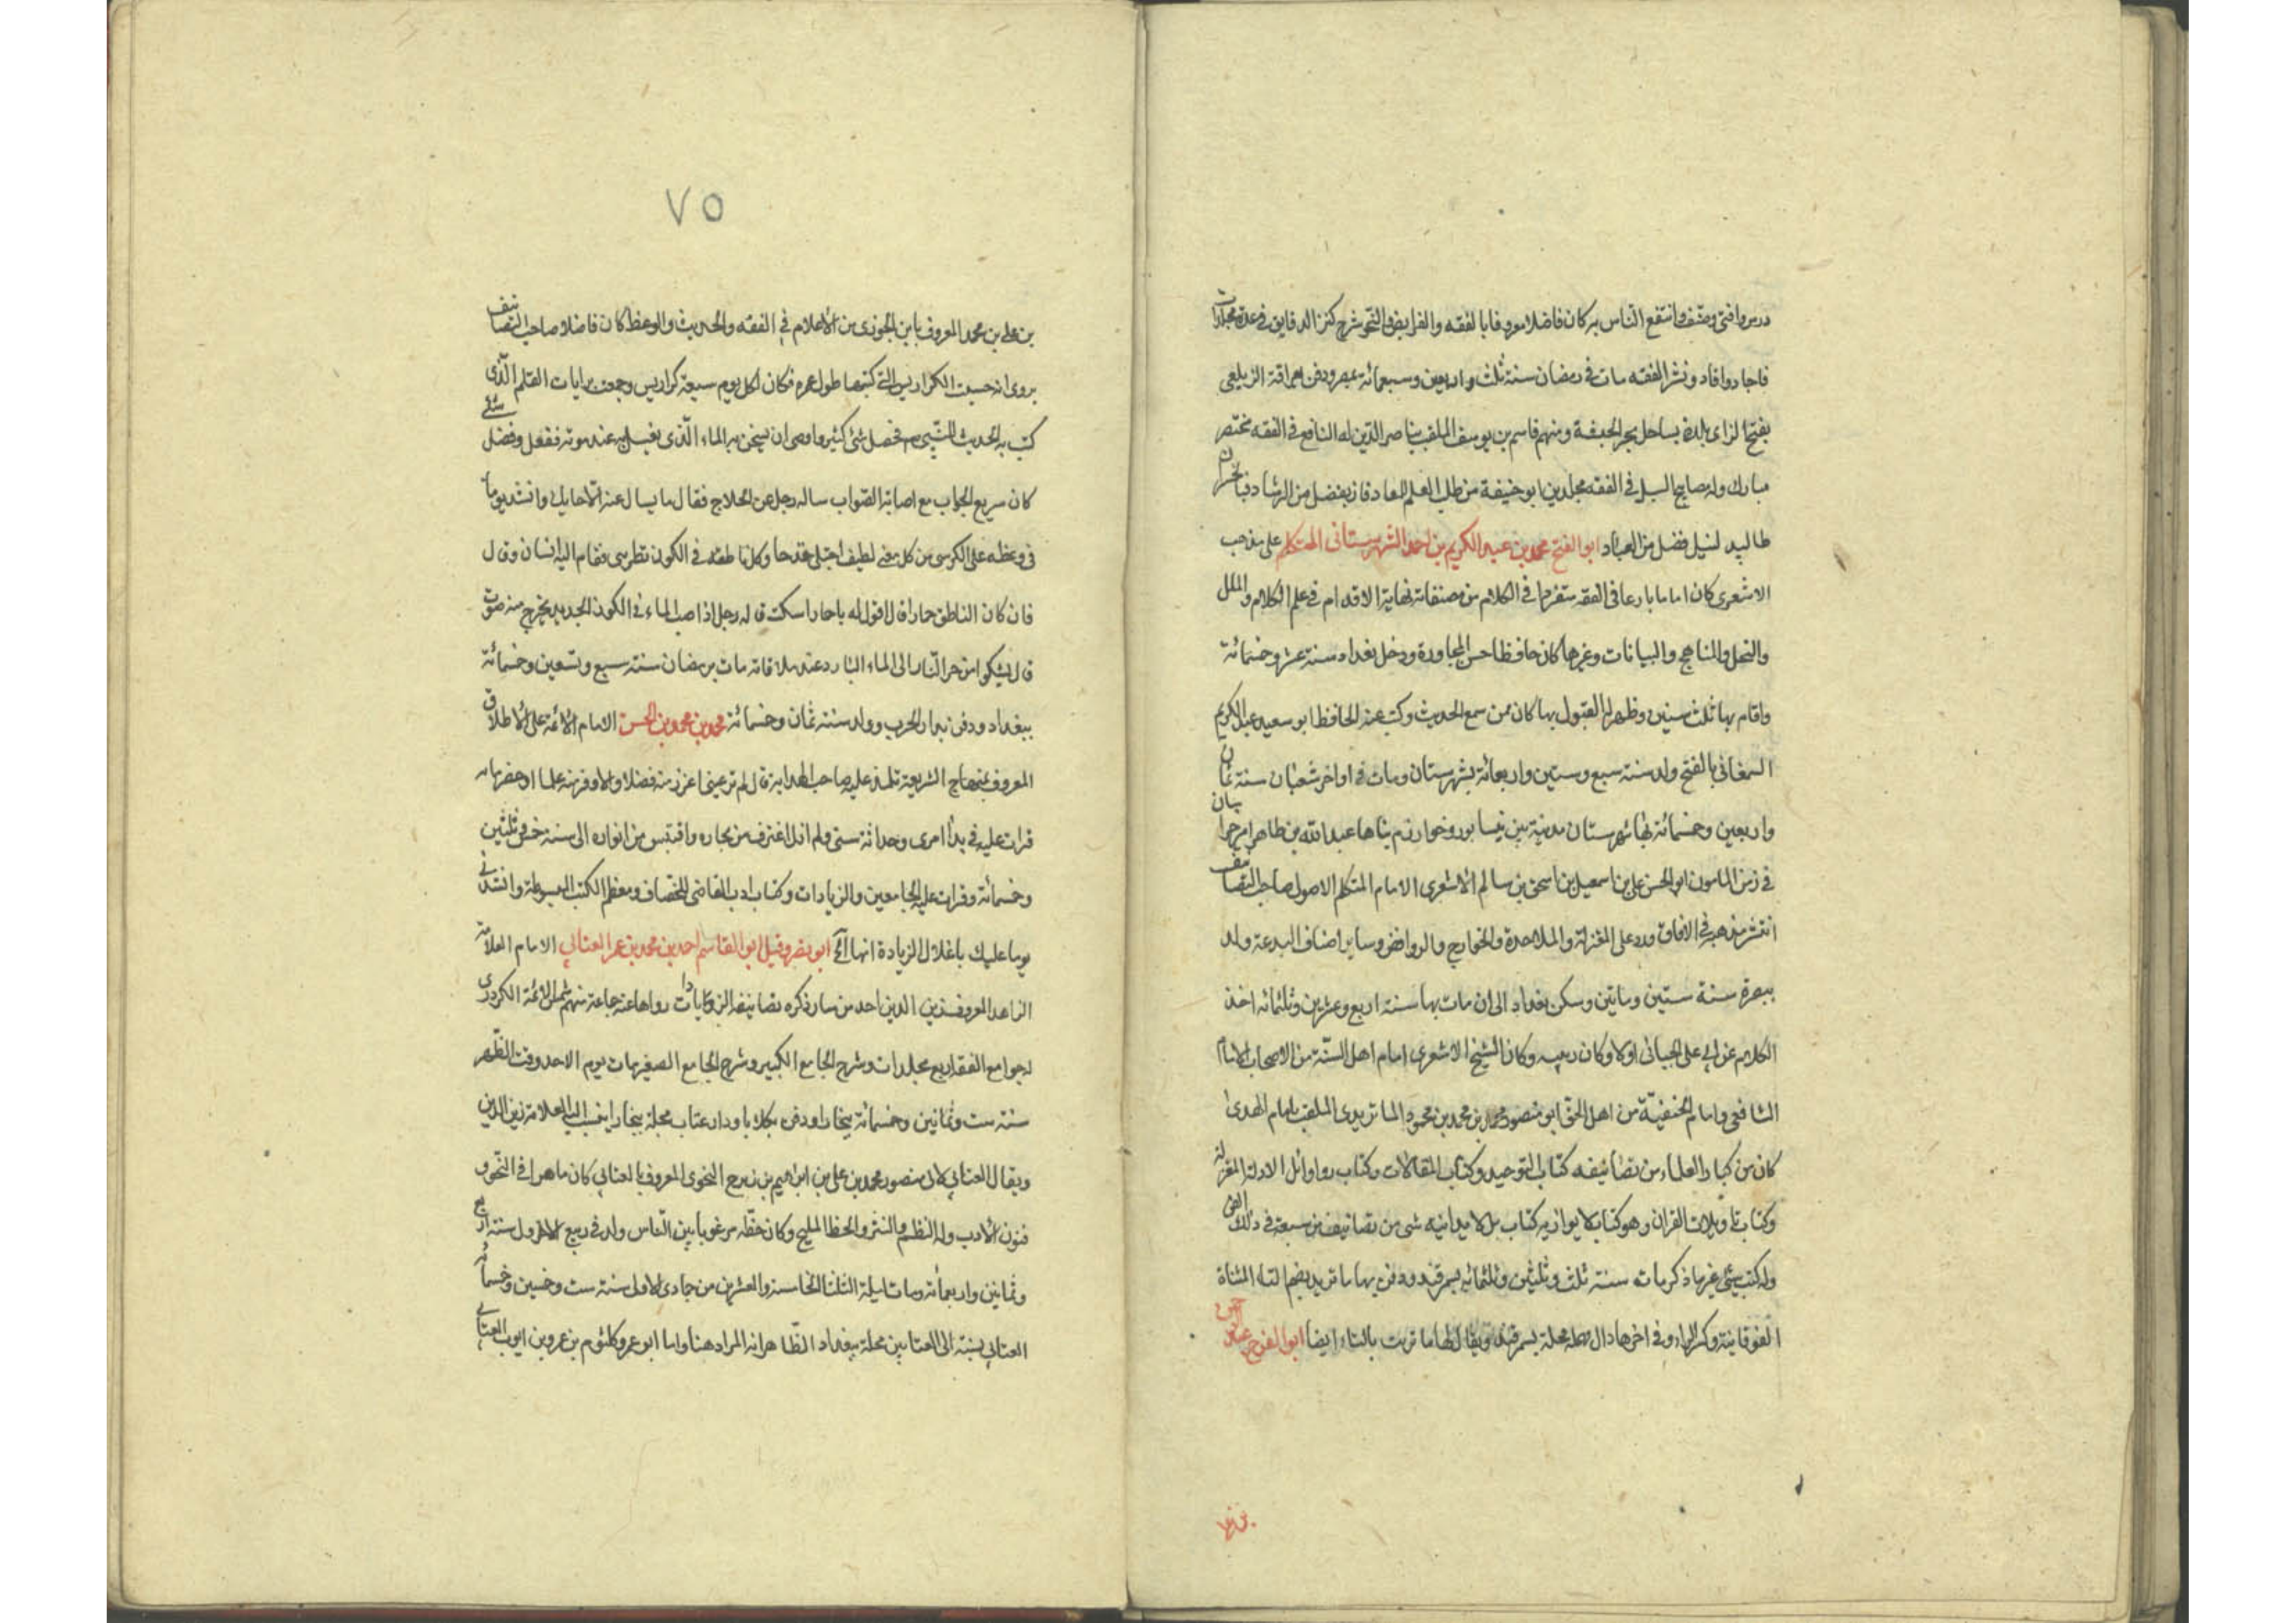 درس وافتى وصنف وانتفع الناس به كان فاضلا معروفا بالفقه والفرايض والنحو شرح كنز الدقايق فى عدة مجلدات
فاجاد وافاد ونشر الفقه مات فى رمضان سنة ثلث واربعين وسبعمائة بمصر ودفن بقرافة الزيلعى
بفتح الزاى بلدة بساحل بحر الحبشة ومنهم قاسم بن يوسف الملقب بناصر الدين له النافع فى الفقه مختصر
مبارك وله مصابيح السبل فى الفقه مجلدين ابو حنيفة من طلب العلم للمعاد فاز بفضل من الرشاد فيا لخسران
طالبيه لنيل فضل من العباد ابو الفتح محمد بن عبد الكريم بن احمد الشهرستانى المتكلم على مذهب
الاشعرى كان اماما بارعا فى الفقه متفردا فى الكلام من مصنفاته نهاية الاقدام فى علم الكلام والملل
والنحل والمناهج والبيانات وغيرها كان حافظا حسن المحاورة ودخل بغداد سنة عشر وخمسمائة
واقام بها ثلث سنين وظهر له القبول بها كان ممن سمع الحديث وكتب عنه الحافظ ابو سعيد عبد الكريم
السمعانى بالفتح ولد سنة سبع وستين واربعمائة بشهرستان ومات فى اواخر شعبان سنة ثمان
واربعين وخمسمائة بها شهرستان مدينة بين نيسابور وخوارزم بناها عبد الله بن طاهر امير خراسان
فى زمن المامون ابو الحسن على بن اسمعيل بن اسحق بن سالم الاشعرى الامام المتكلم الاصولى صاحب التصانيف
انتشر مذهبه فى الافاق ورد على المعتزلة والملاحدة والخوارج والروافض وساير اصناف البدعة ولد
ببصرة سنة ستين وماتين وسكن بغداد الى ان مات بها سنة اربع وعشرين وثلثمائه اخذ
الكلام عن ابى على الجبائى اولا وكان ربيبه وكان الشيخ الاشعرى امام اهل السنة من الاصحاب الامام
الشافعى وامام الحنفية من اهل الحق ابو منصور محمد بن محمد بن محمود الماتريدى الملقب بامام الهدى
كان من كبار العلماء من تصانيفه كتاب التوحيد وكتاب المقالات وكتاب رد اوائل الادلة المعتزلة
وكتاب تاويلات القران وهو كتاب لا يوازيه كتاب بل لا يدانيه شى من تصانيف من سبقه فى ذلك الفن
وله كتب شتى غيرها ذكر مات سنة ثلث وثلثين وثلثمائه بسمرقند ودفن بها ماتريد بضم التاء المثناة
الفوقانية وكسر الراء وفى اخرها دال مهملة محلة بسمرقند ويقال لها ماتريت بالتاء ايضا ابو الفرج عبد الرحمن
بن على
٧٥
بن على بن محمد المعروف بابن الجوزى من الاعلام فى الفقه والحديث والوعظ كان فاضلا صاحب التصانيف
يروى انه حسبت الكراريس التى كتبها طول عمره فكان لكل يوم سبعة كراريس وجمعت برايات القلم الذى
كتب به الحديث النبى م فحصل شئ كثير واوصى ان يسخن به الماء الذى يغسل به عند موته ففعل وفضل شئ
كان سريع الجواب مع اصابة الصواب ساله رجل عن الحلاج فقال ما يسال عنه الا حايك وانشد يوما
فى وعظه على الكرسى من كل معنى لطيف اجتلى قدحا وكل ناطقة فى الكون تطربنى فقام اليه انسان وقال
فان كان الناطق حمارا قال اقول له يا حمار اسكت قال رجل اذا صب الماء فى الكوز الجديد يخرج منه صوت
قال يشكو امن حر النار الى الماء البارد عند ملاقاته مات برمضان سنة سبع وتسعين وخمسمائة
ببغداد ودفن بدار الحرب وولد سنة ثمان وخمسمائة محمد بن محمد بن الحسن الامام الائمة على الاطلاق
المعروف بمنهاج الشريعة تلمذ عليه صاحب الهداية قال لم تر عينى اعزز منه فضلا ولا اوفر منه علما
قرات عليه فى بدأ امرى وحداثة سنى ولم ازل اغترف من بحاره واقتبس من انواره الى سنة خمس وثلثين
وخمسمائة وقرات عليه الجامعين والزيادات وكتاب ادب القاضى للخصاف ومعظم الكتب المبسوطة وانشدنى
يوما عليك باغلال الزيادة انها الخ ابو نصر وقيل ابو القاسم احمد بن محمد بن عمر العتابى الامام العلامة
الزاهد المعروف بزين الدين احد من سار ذكره تصانيفه الزيادات رواها عنه جماعة منهم شمس الائمة الكردرى
له جوامع الفقه اربع مجلدات وشرح الجامع الكبير وشرح الجامع الصغير مات يوم الاحد وقت الظهر
سنة ست وثمانين وخمسمائة ببخارا ودفن بكلاباد ودار عتاب محلة ببخارا ينسب اليه العلامة زين الدين
ويقال العتابى لابى منصور محمد بن على بن ابراهيم بن زبرج النحوى المعروف بالعتابى كان ماهرا فى النحو و
فنون الادب وله النظم والنثر والخط المليح وكان خطه مرغوبا بين الناس ولد فى ربيع الاول سنة اربع
وثمانين واربعمائة ومات ليلة الثلثا الخامسة والعشرين من جمادى الاول سنة ست وخمسين وخمسمائة
العتابى نسبة الى العتابين محلة ببغداد الظاهر انه المراد هنا واما ابو عمرو كلثوم بن عمرو بن ايوب العتابى